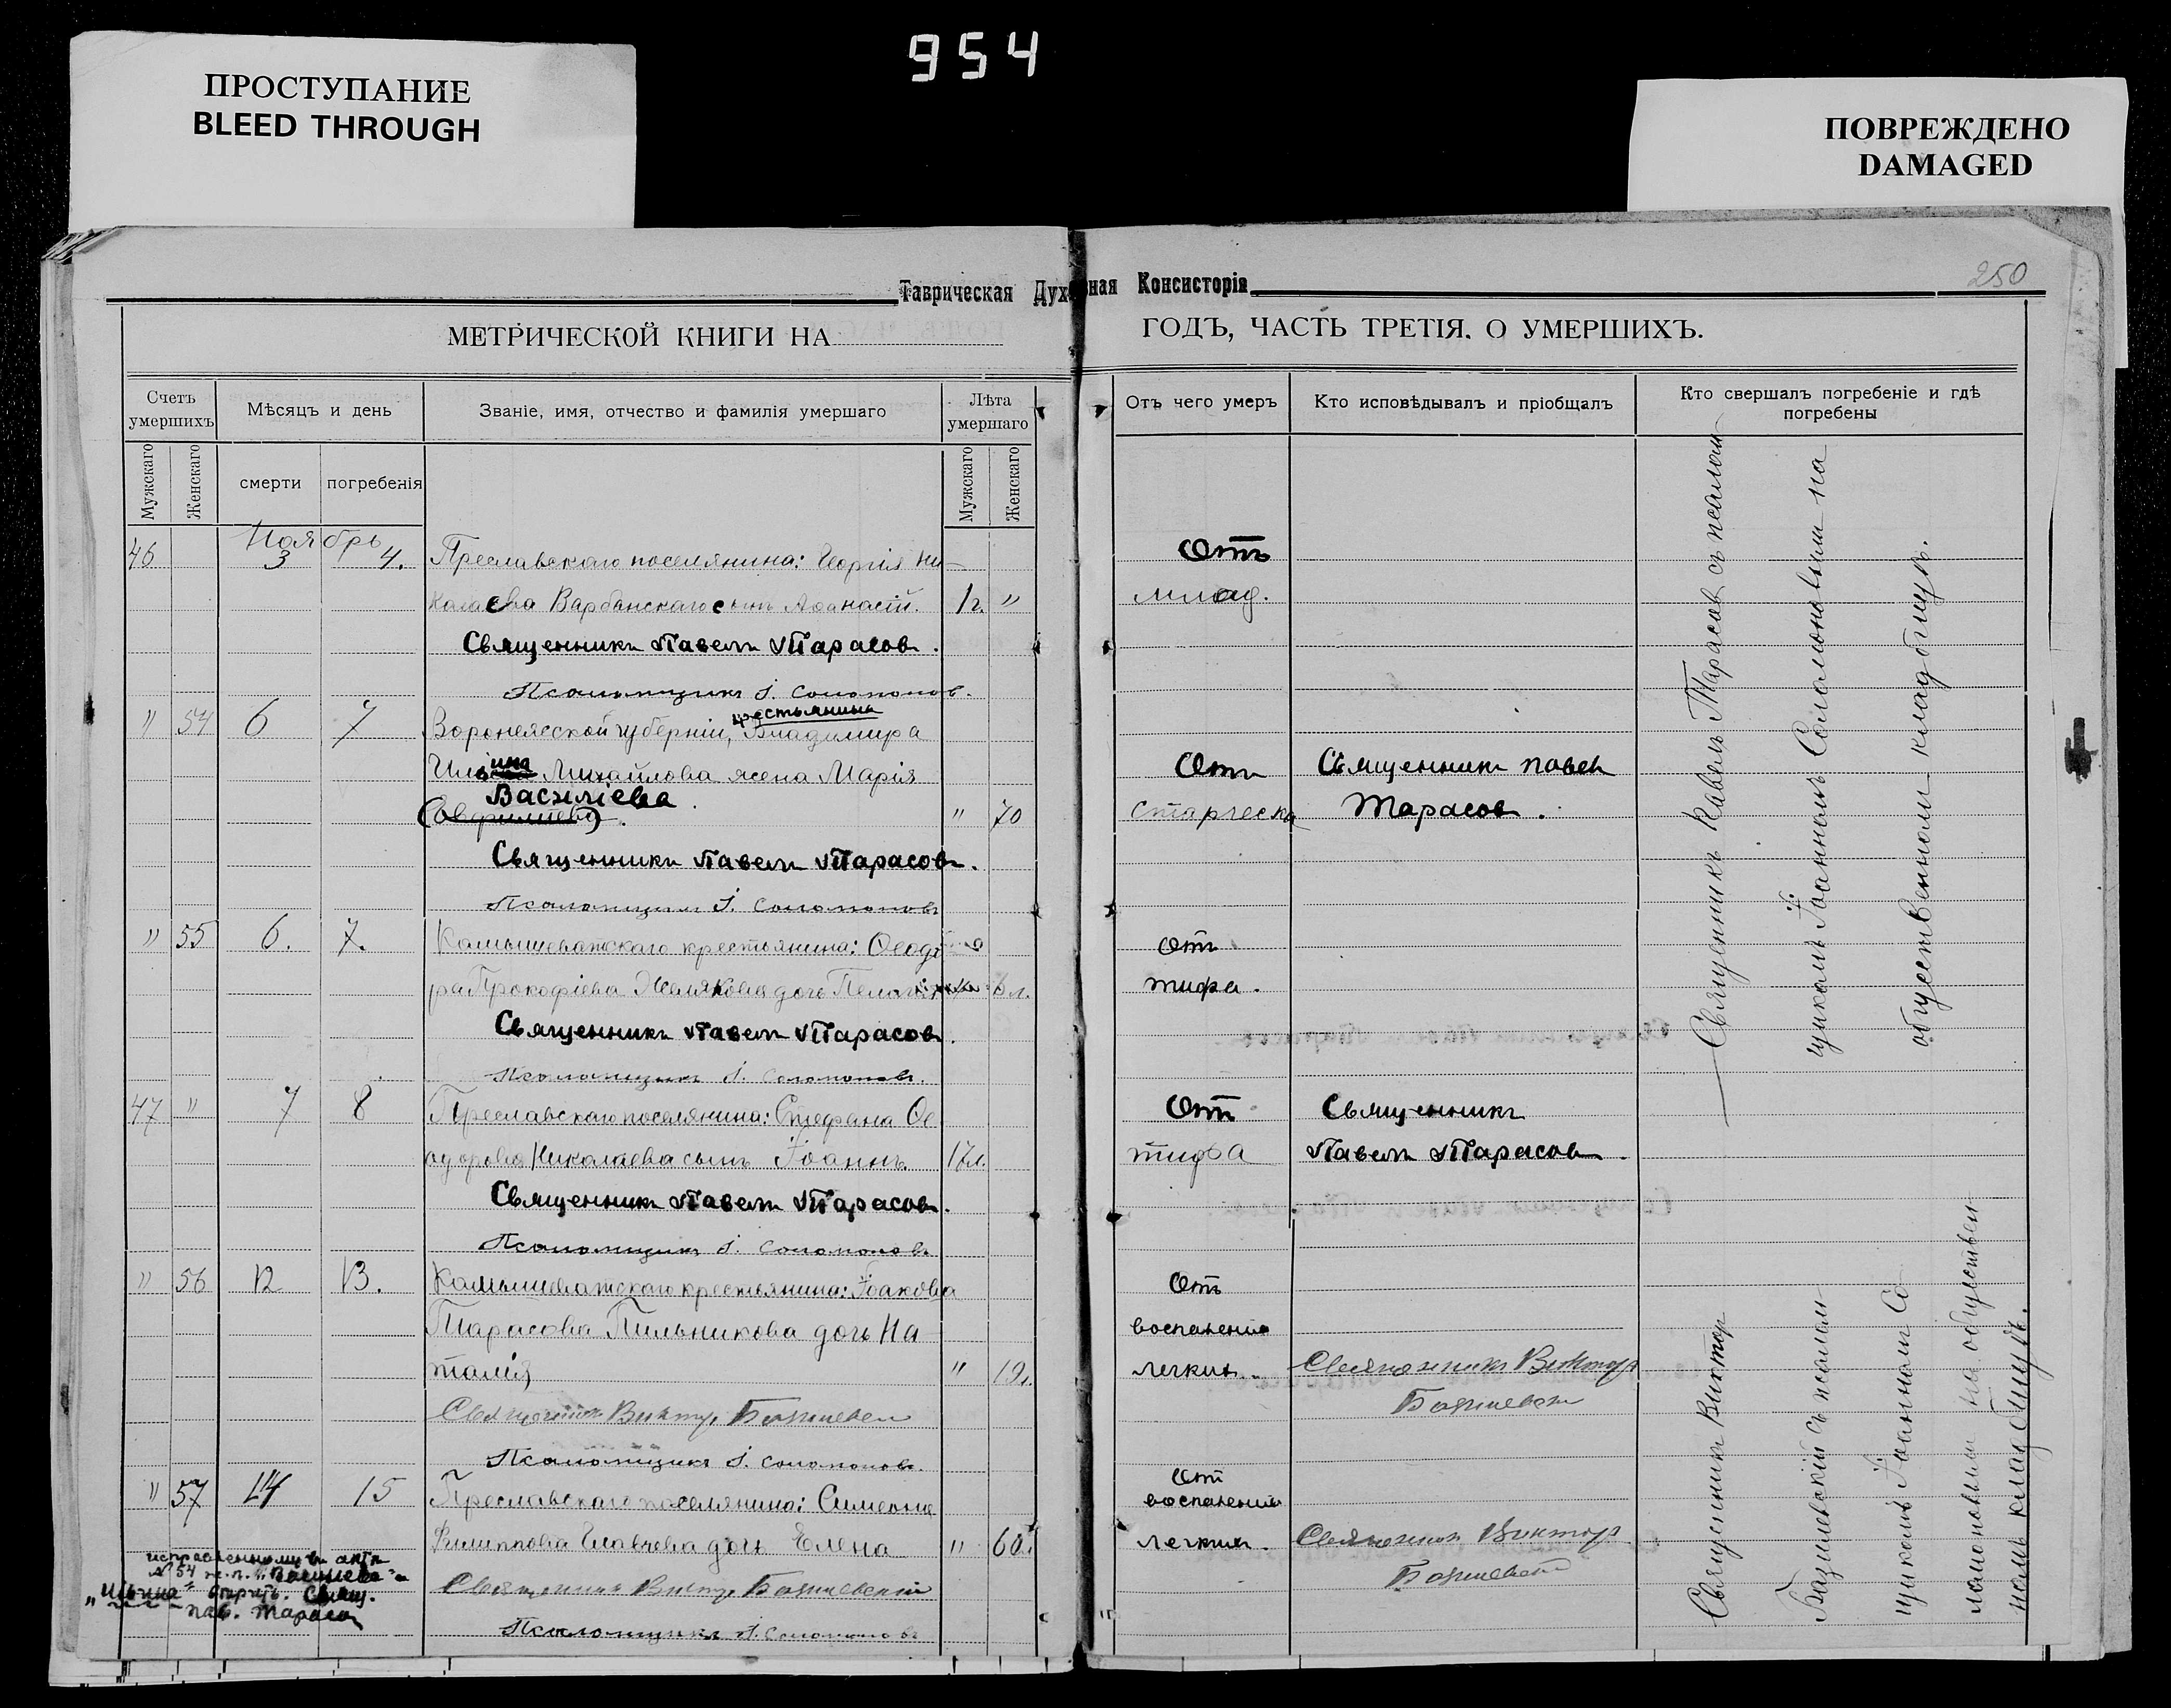 954
ПРОСТУПАНИЕ
BLEED THROUGH
ПОВРЕЖДЕНО
DAMAGED
Таврическая Духовная Консисторія
250
МЕТРИЧЕСКОЙ КНИГИ НА ГОДЪ, ЧАСТЬ ТРЕТІЯ. О УМЕРШИХЪ.
Счетъ умершихъ
Мѣсяцъ и день
Званіе, имя, отчество и фамилія умершаго
Лѣта умершаго
Отъ чего умеръ
Кто исповѣдывалъ и пріобщалъ
Кто свершалъ погребеніе и гдѣ погребены
Мужскаго
Женскаго
смерти
погребенія
Мужскаго
Женскаго
Ноябрь
46 3 4. Преславскаго поселянина: Георгія Ни-
колаева Варбанскаго сынъ Аѳанасій. 1г. "
Отъ
млад.
Священникъ Павелъ Тарасов.
Псаломщикъ І. Соломонов.
" 54 6 7 Воронежской губерніи, крестьянина Владимира
Ильина Михайлова жена Марія
Василіева " 70
Отъ
старческа
Священникъ Павел
Тарасов.
Священникъ Павелъ Тарасовъ.
Псаломщикъ І. Соломоновъ
" 55 6. 7. Камышеватскаго крестьянина: Ѳеодо-
ра Прокофіева дочь 6 л.
Отъ
тифа.
Священникъ Павелъ Тарасовъ.
Псаломщикъ І. Соломоновъ.
47 " 7 8 Преславскаго поселянина: Стефана Ѳе
одорова Николаева сынъ Іоаннъ 17л.
Отъ
тифа
Священникъ
Павелъ Тарасовъ.
Священникъ Павелъ Тарасовъ.
Псаломщикъ І. Соломоновъ
" 56 12 13. Камышеватскаго крестьянина: Іоакова
Тарасова Пильникова дочь На
талія "
Отъ
воспаленія
легкихъ.
Священникъ Викторъ
Базилевскій
Священникъ Викторъ Базилевскій
Псаломщикъ І. Соломоновъ.
" 57 14 15 Преславскаго поселянина: Симеона
Филиппова Главчева дочь Елена " 60.
Отъ
воспаленія
легкихъ.
Священникъ Викторъ
Базилевскій
Священникъ Викторъ Базилевскій
Псаломщикъ І. Соломоновъ
исправленному въ актѣ
№ 54 ж. п. "Василіева" и
"Ильина" вѣрить. Свящ.
Пав. Тарасов
Священникъ Павелъ Тарасов съ псалом-
щикомъ Іоанномъ Соломоновымъ на
общественномъ кладбищѣ.
Священникъ Виктор
Базилевскій съ псалом-
щикомъ Іоанномъ Со
ломоновымъ на общественномъ
кладбищѣ.